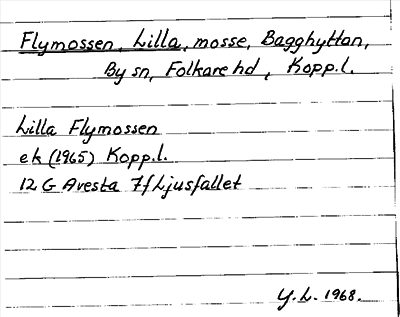 Flymossen, Lilla, mosse, Bagghyttan,
By sn, Folkare hd, Kopp.l.
Lilla Flymossen
ek (1965) Kopp.l.
12 G Avesta 7f Ljusfallet
Y.L. 1968.